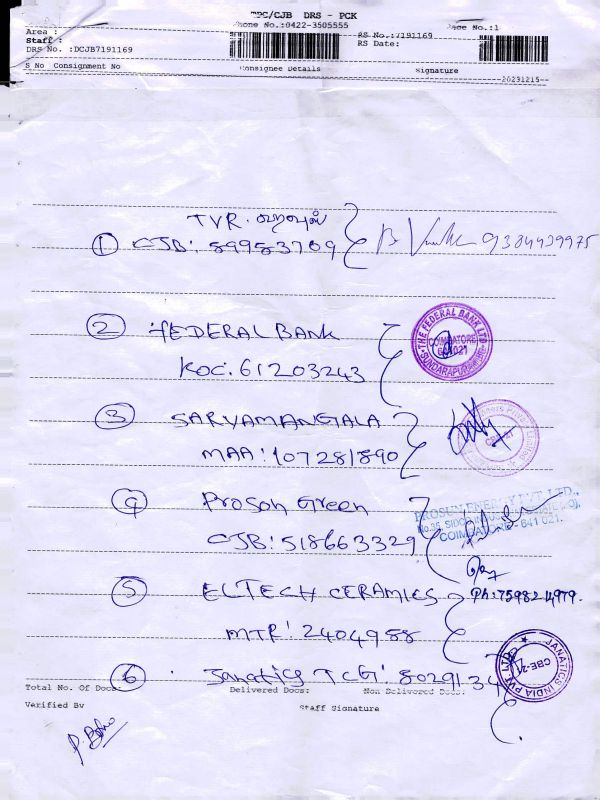 TPC/CJB DRS - PCK
Phone No.:0422-3505555
Page No.:1
Area :
Staff :
DRS No. :DCJB7191169
RS No.:7191169
RS Date:
S No Consignment No Consignee Details Signature
20231215
TVR.
① CJB: 89983709 9384439975
② FEDERAL BANK
KOC: 61203243
THE FEDERAL BANK LTD
COIMBATORE
641021
SUNDARAPURAM
③ SARVAMANGALA
MAA: 107281890
④ Proson Green
CJB: 518663329
PROSUN ENERGY PVT. LTD.,
COIMBATORE - 641 021.
⑤ ELTECH CERAMICS Ph: 7598214979.
MTR: 2404988
⑥ Janatics TCG: 8029134
JANATICS INDIA PVT LTD
CBE-21
Total No. Of Docs: Delivered Docs: Non Delivered Docs:
Verified By
Staff Signature